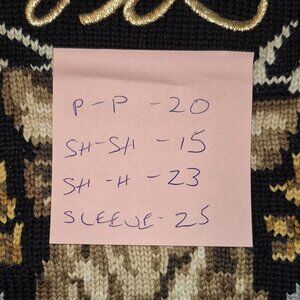 P-P -20
SH-SH -15
SH -H -23
SLEEVE- 25